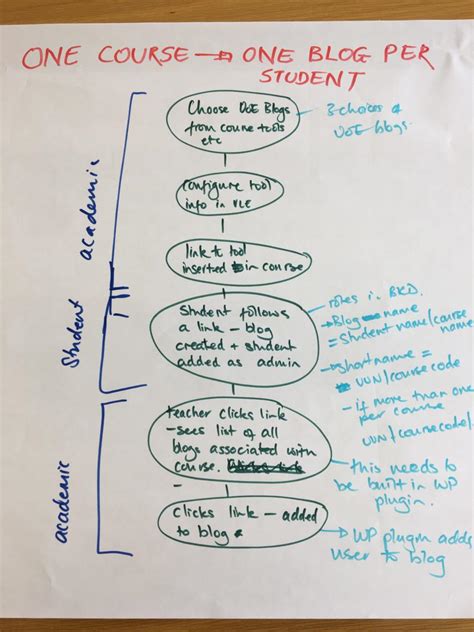 ONE COURSE → ONE BLOG PER
STUDENT
Choose UoE Blogs
from course tools
etc
3 choices of
UoE blogs.
academic
configure tool
info in VLE
link to tool
inserted in course
Student
Student follows
a link – blog
created + student
added as admin
roles in BKD.
→ Blog name
= Student name/course
name
→ shortname =
UUN/coursecode
– if more than one
per course
UUN/coursecode1.
academic
teacher clicks link
– sees list of all
blogs associated with
course.
→ this needs to
be built in WP
plugin.
–
clicks link – added
to blog
→ WP plugin adds
user to blog